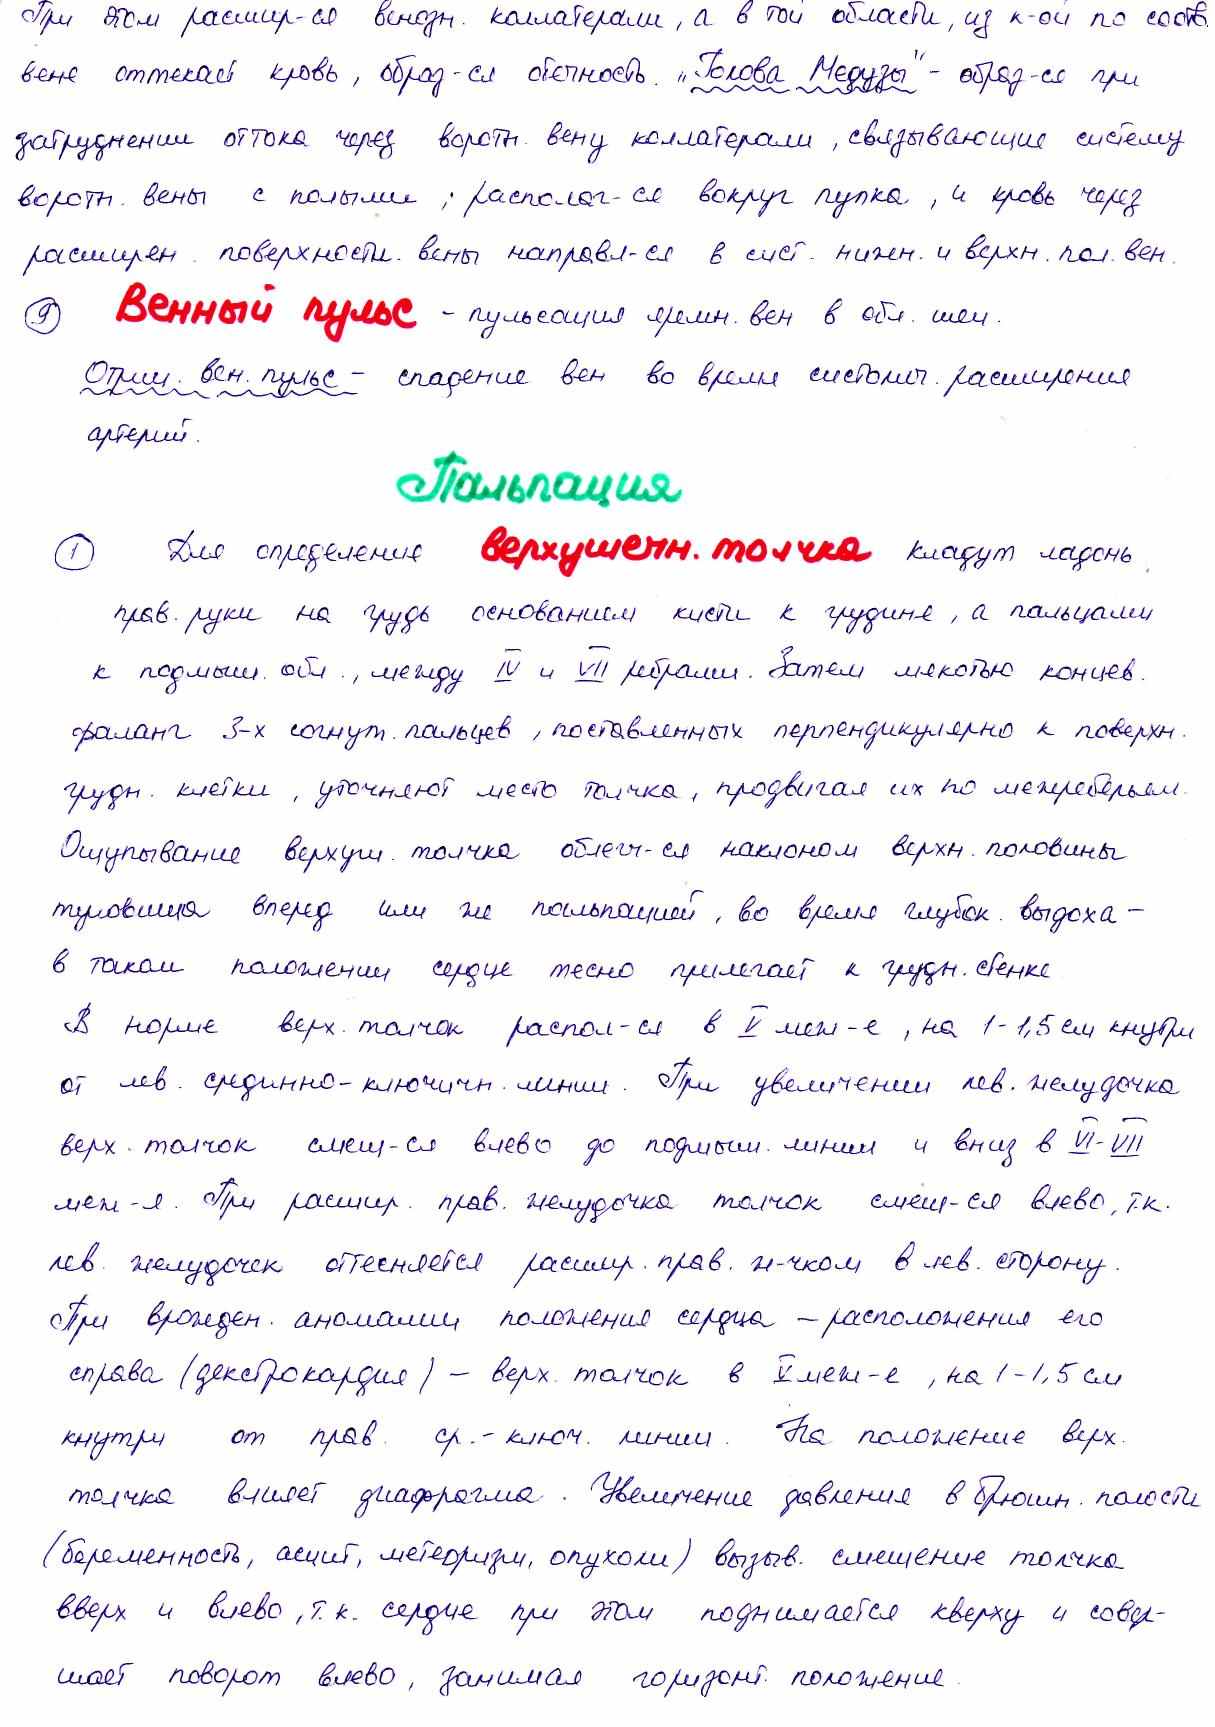 При этом расшир-ся венозн. коллатерали, а в той области, из к-ой по соотв.
вене оттекает кровь, образ-ся отечность. „Голова Медузы" - образ-ся при
затруднении оттока через воротн. вену коллатерали, связывающие систему
воротн. вены с полыми; располаг-ся вокруг пупка, и кровь через
расширен. поверхностн. вены направл-ся в сист. нижн. и верхн. пол. вен.
9 Венный пульс - пульсация яремн. вен в обл. шеи.
Отриц. вен. пульс - спадение вен во время систолич. расширения
артерий.
Пальпация
1 Для определения верхушечн. толчка кладут ладонь
прав. руки на грудь основанием кисти к грудине, а пальцами
к подмыш. обл., между IV и VII ребрами. Затем мякотью концев.
фаланг 3-х согнут. пальцев, поставленных перпендикулярно к поверхн.
грудн. клетки, уточняют место толчка, продвигая их по межреберьям.
Ощупывание верхуш. толчка облегч-ся наклоном верхн. половины
туловища вперед или же пальпацией, во время глубок. выдоха -
в таком положении сердце тесно прилегает к грудн. стенке
В норме верх. толчок распол-ся в V меж-е, на 1-1,5 см кнутри
от лев. срединно-ключичн. линии. При увеличении лев. желудочка
верх. толчок смещ-ся влево до подмыш. линии и вниз в VI-VII
меж-я. При расшир. прав. желудочка толчок смещ-ся влево, т.к.
лев. желудочек оттесняется расшир. прав. ж-чком в лев. сторону.
При врожден. аномалии положения сердца - расположения его
справа (декстрокардия) - верх. толчок в V меж-е, на 1-1,5 см
кнутри от прав. ср.-ключ. линии. На положение верх.
толчка влияет диафрагма. Увеличение давления в брюшн. полости
(беременность, асцит, метеоризм, опухоли) вызыв. смещение толчка
вверх и влево, т.к. сердце при этом поднимается кверху и совер-
шает поворот влево, занимая горизонт. положение.